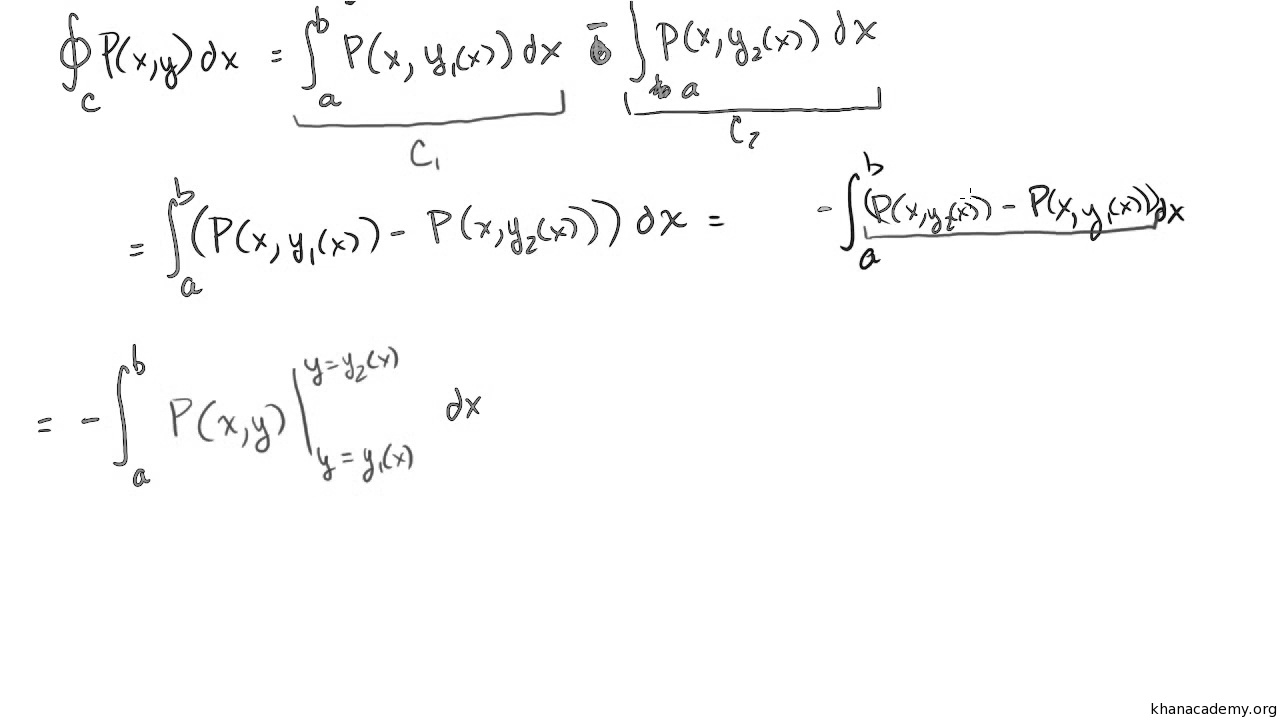 ∮_C P(x,y) dx = ∫_a^b P(x, y₁(x)) dx - ∫_a P(x, y₂(x)) dx
C₁ C₂
= ∫_a^b (P(x, y₁(x)) - P(x, y₂(x))) dx = - ∫_a^b (P(x, y₂(x)) - P(x, y₁(x))) dx
= - ∫_a^b P(x,y) |_{y = y₁(x)}^{y = y₂(x)} dx
khanacademy.org